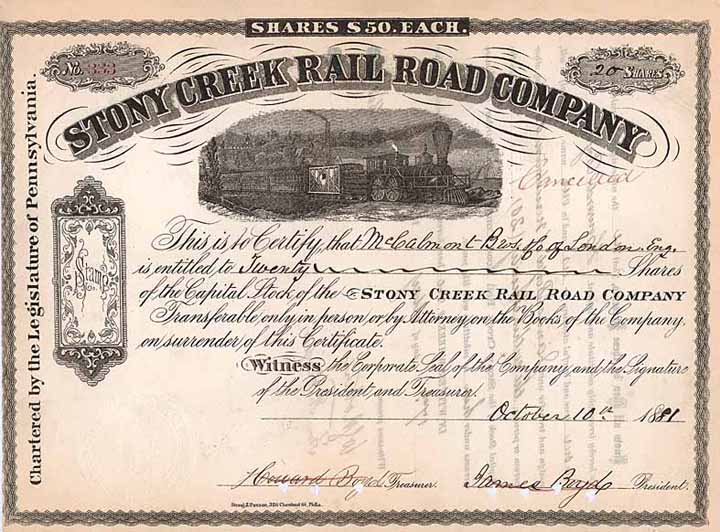 SHARES $50. EACH.
No. 333
20 SHARES
STONY CREEK RAIL ROAD COMPANY
Cancelled
Chartered by the Legislature of Pennsylvania.
Stamp
This is to Certify, that McCalmont Bros. & Co of London Eng.
is entitled to Twenty Shares
of the Capital Stock of the STONY CREEK RAIL ROAD COMPANY
Transferable only in person or by Attorney on the Books of the Company,
on surrender of this Certificate.
Witness the Corporate Seal of the Company and the Signature
of the President and Treasurer.
October 10th 1881
Howard Boyd Treasurer. James Boyd President.